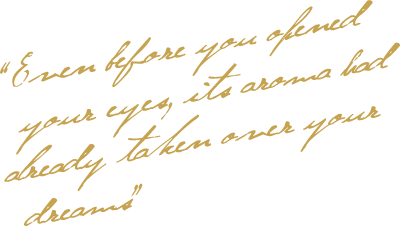 “Even before you opened
your eyes, its aroma had
already taken over your
dreams”